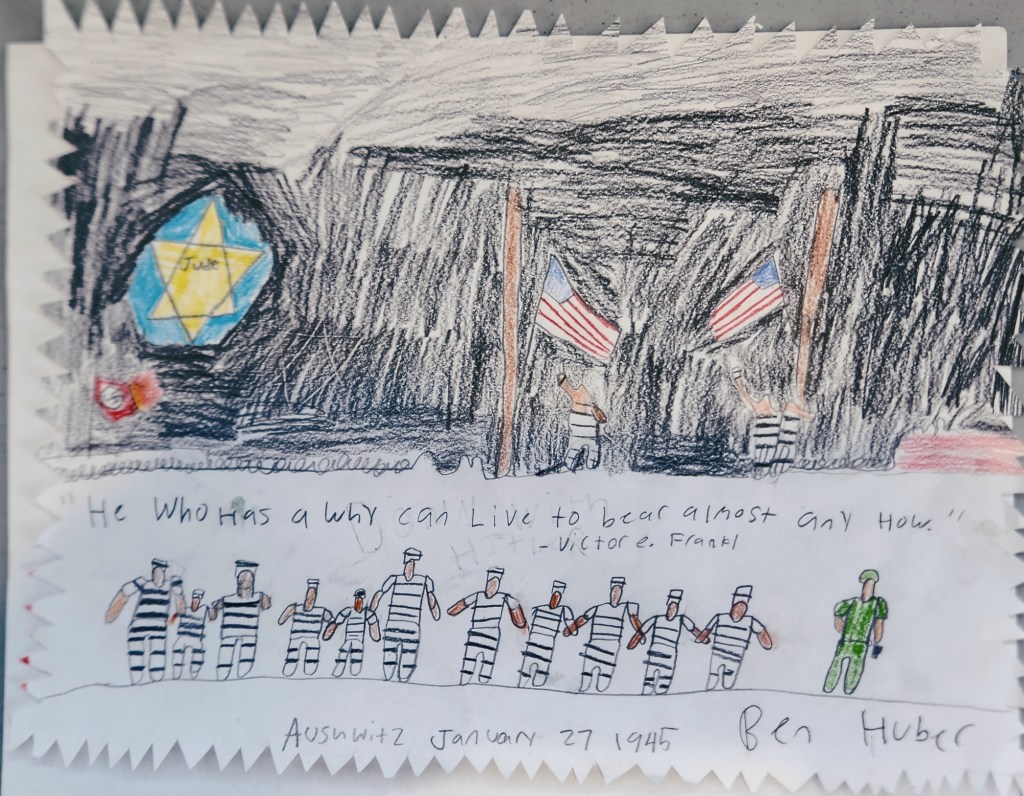 Jude
"He Who Has a Why can Live to bear almost any How."
- Victor e. Frankl
Aushwitz January 27 1945
Ben Huber